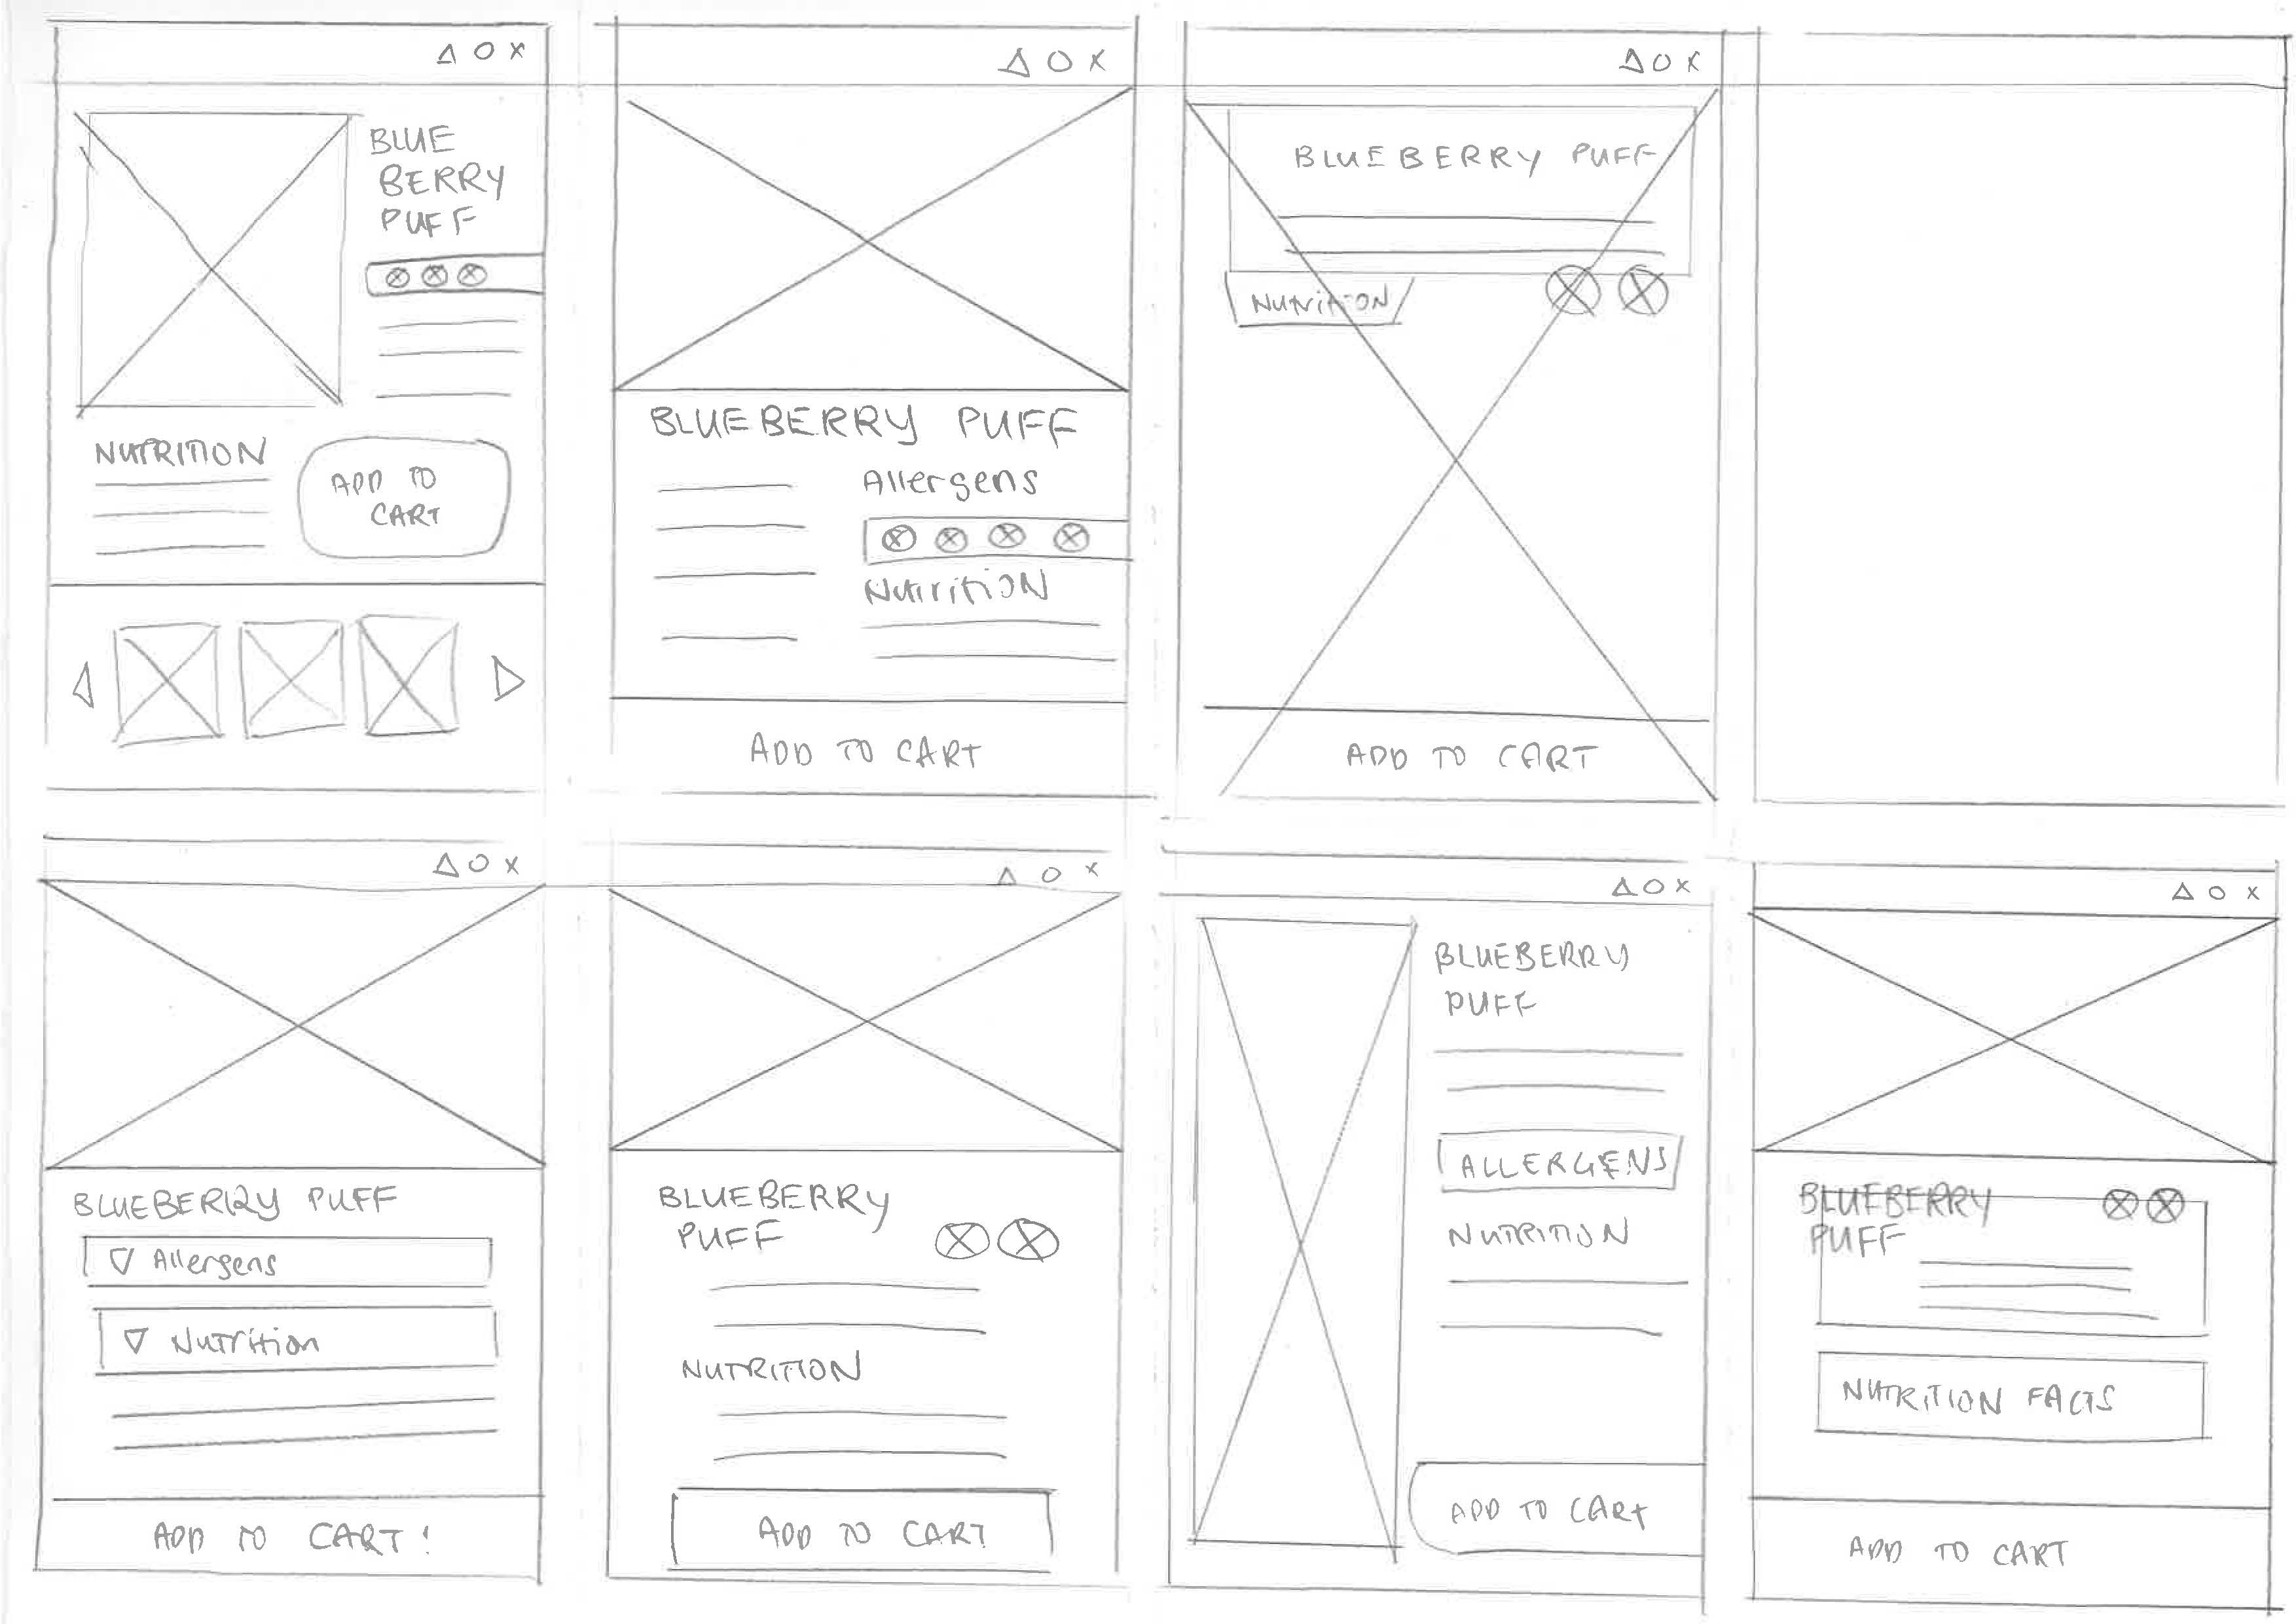 Δ O X
BLUE
BERRY
PUFF
NUTRITION
ADD TO
CART
Δ O X
BLUEBERRY PUFF
Allergens
Nutrition
ADD TO CART
Δ O X
BLUEBERRY PUFF
NUTRITION
ADD TO CART
Δ O X
BLUEBERRY PUFF
Allergens
Nutrition
ADD TO CART!
Δ O X
BLUEBERRY
PUFF
NUTRITION
ADD TO CART
Δ O X
BLUEBERRY
PUFF
ALLERGENS
NUTRITION
ADD TO CART
Δ O X
BLUEBERRY
PUFF
NUTRITION FACTS
ADD TO CART